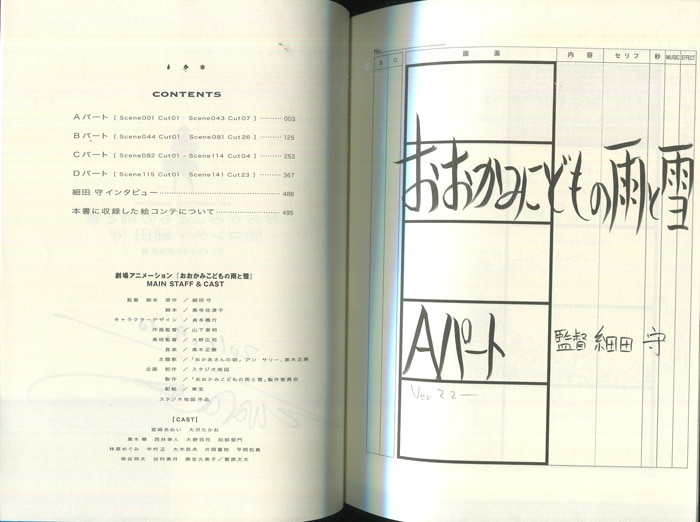 CONTENTS
Aパート [ Scene001 Cut01 - Scene043 Cut07 ] ……… 003
Bパート [ Scene044 Cut01 - Scene081 Cut26 ] ……… 125
Cパート [ Scene082 Cut01 - Scene114 Cut04 ] ……… 253
Dパート [ Scene115 Cut01 - Scene141 Cut23 ] ……… 367
細田 守インタビュー ……… 488
本書に収録した絵コンテについて ……… 495
劇場アニメーション『おおかみこどもの雨と雪』
MAIN STAFF & CAST
監督 脚本 原作 / 細田守
脚本 / 奥寺佐渡子
キャラクターデザイン / 貞本義行
作画監督 / 山下高明
美術監督 / 大野広司
音楽 / 高木正勝
主題歌 / 「おかあさんの唄」アン・サリー、高木正勝
企画 制作 / スタジオ地図
製作 / 「おおかみこどもの雨と雪」製作委員会
配給 / 東宝
スタジオ地図作品
【CAST】
宮﨑あおい 大沢たかお
黒木華 西井幸人 大野百花 加部亜門
林原めぐみ 中村正 大木民夫 片岡富枝 平岡拓真
染谷将太 谷村美月 麻生久美子 / 菅原文太
No.
S C 画面 内容 セリフ 秒 MUSIC EFFECT
おおかみこどもの雨と雪
Aパート
監督 細田 守
Ver 22